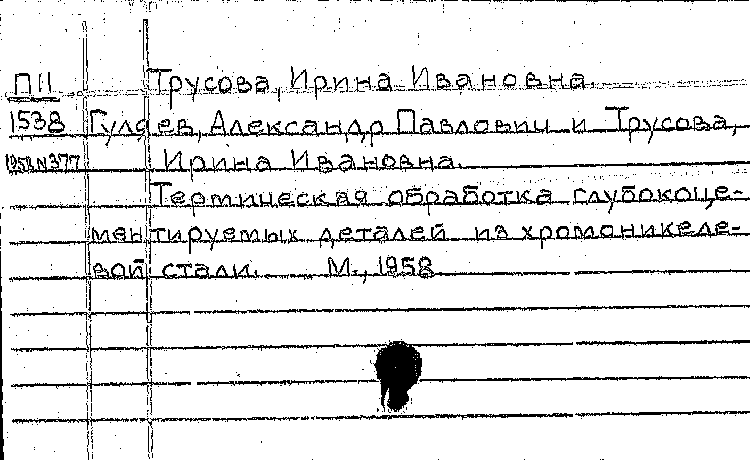 П11 Трусова, Ирина Ивановна.
1538 Гуляев, Александр Павлович и Трусова,
1958 N377 Ирина Ивановна.
Термическая обработка глубокоце-
ментируемых деталей из хромоникеле-
вой стали. М., 1958